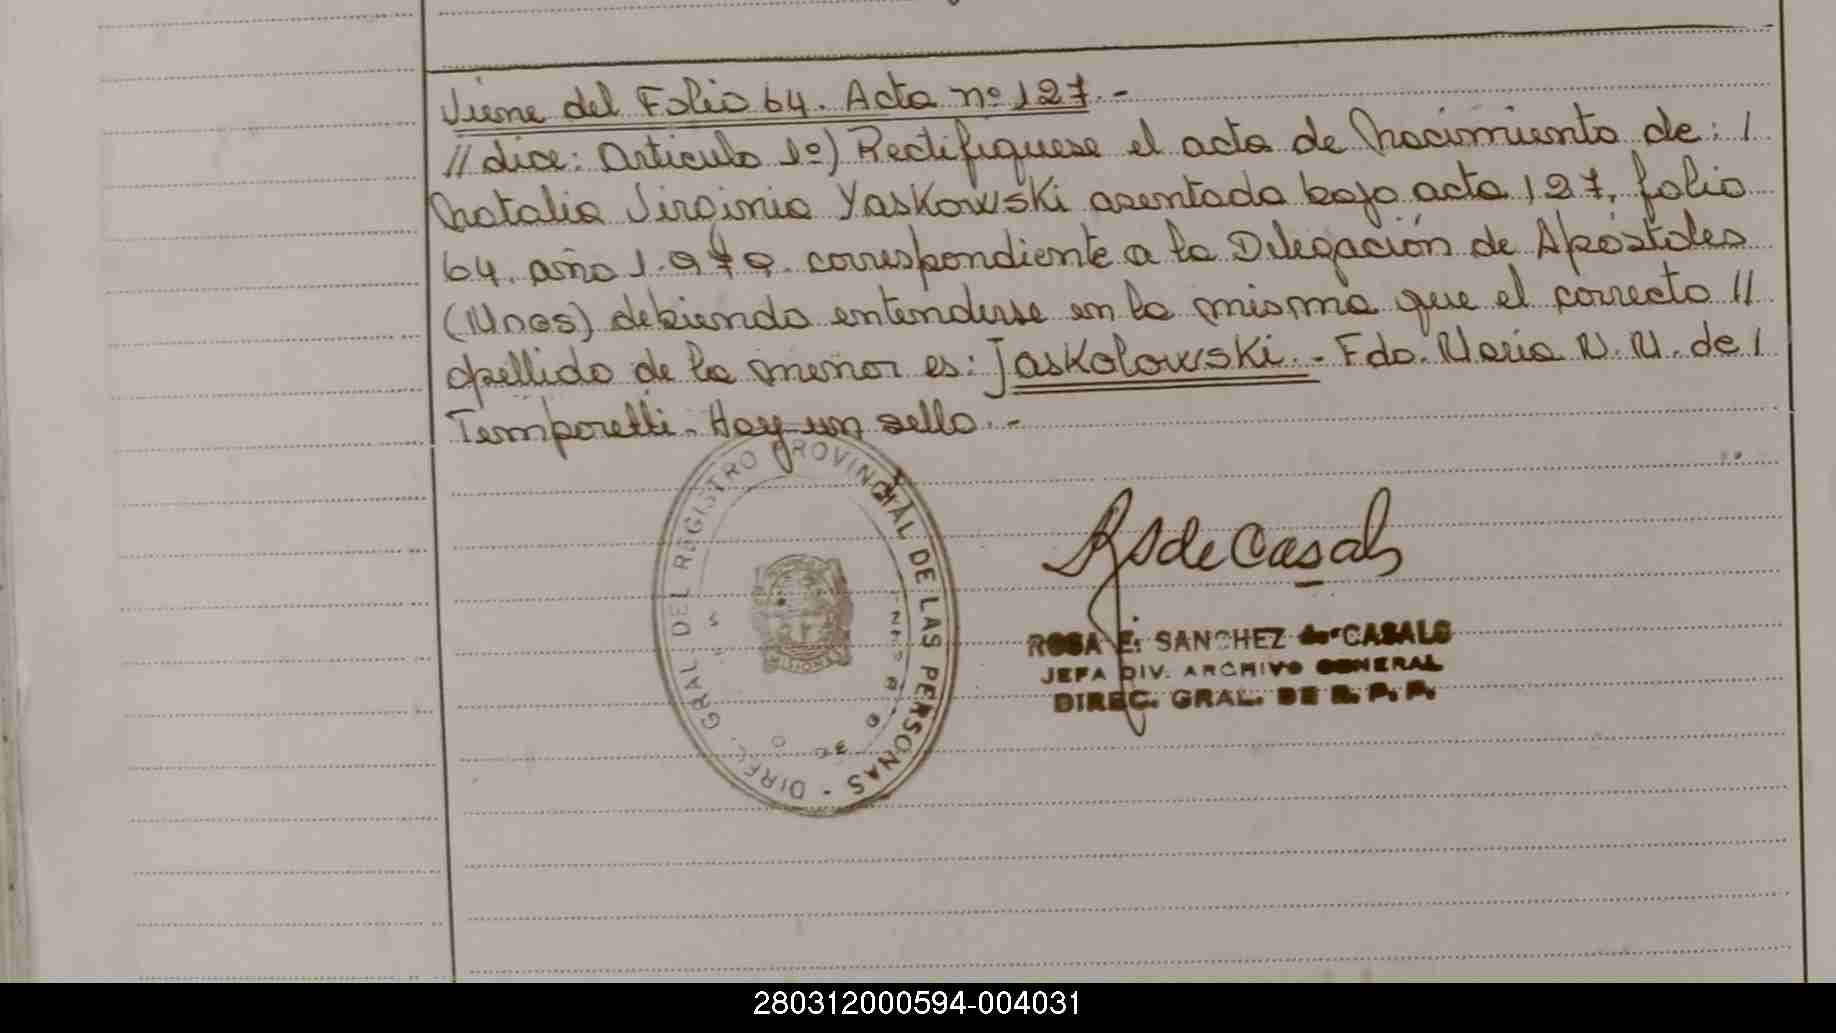 Viene del Folio 64. Acta nº 127.-
// dice: Articulo 1º) Rectifiquese el acta de Nacimiento de: /
Natalia Virginia Yaskowski asentada bajo acta 127, folio
64. año 1.979. correspondiente a la Delegación de Apóstoles
(Mnes) debiendo entenderse en la misma que el correcto //
apellido de la menor es: Jaskolowski.- Fdo. Maria N. M. de /
Temporetti. Hay un sello.-
DIREC. GRAL. DEL REGISTRO PROVINCIAL DE LAS PERSONAS
MISIONES
RSdeCasals
ROSA E. SANCHEZ de CASALS
JEFA DIV. ARCHIVO GENERAL
DIREC. GRAL. DE R. P. P.
280312000594-004031